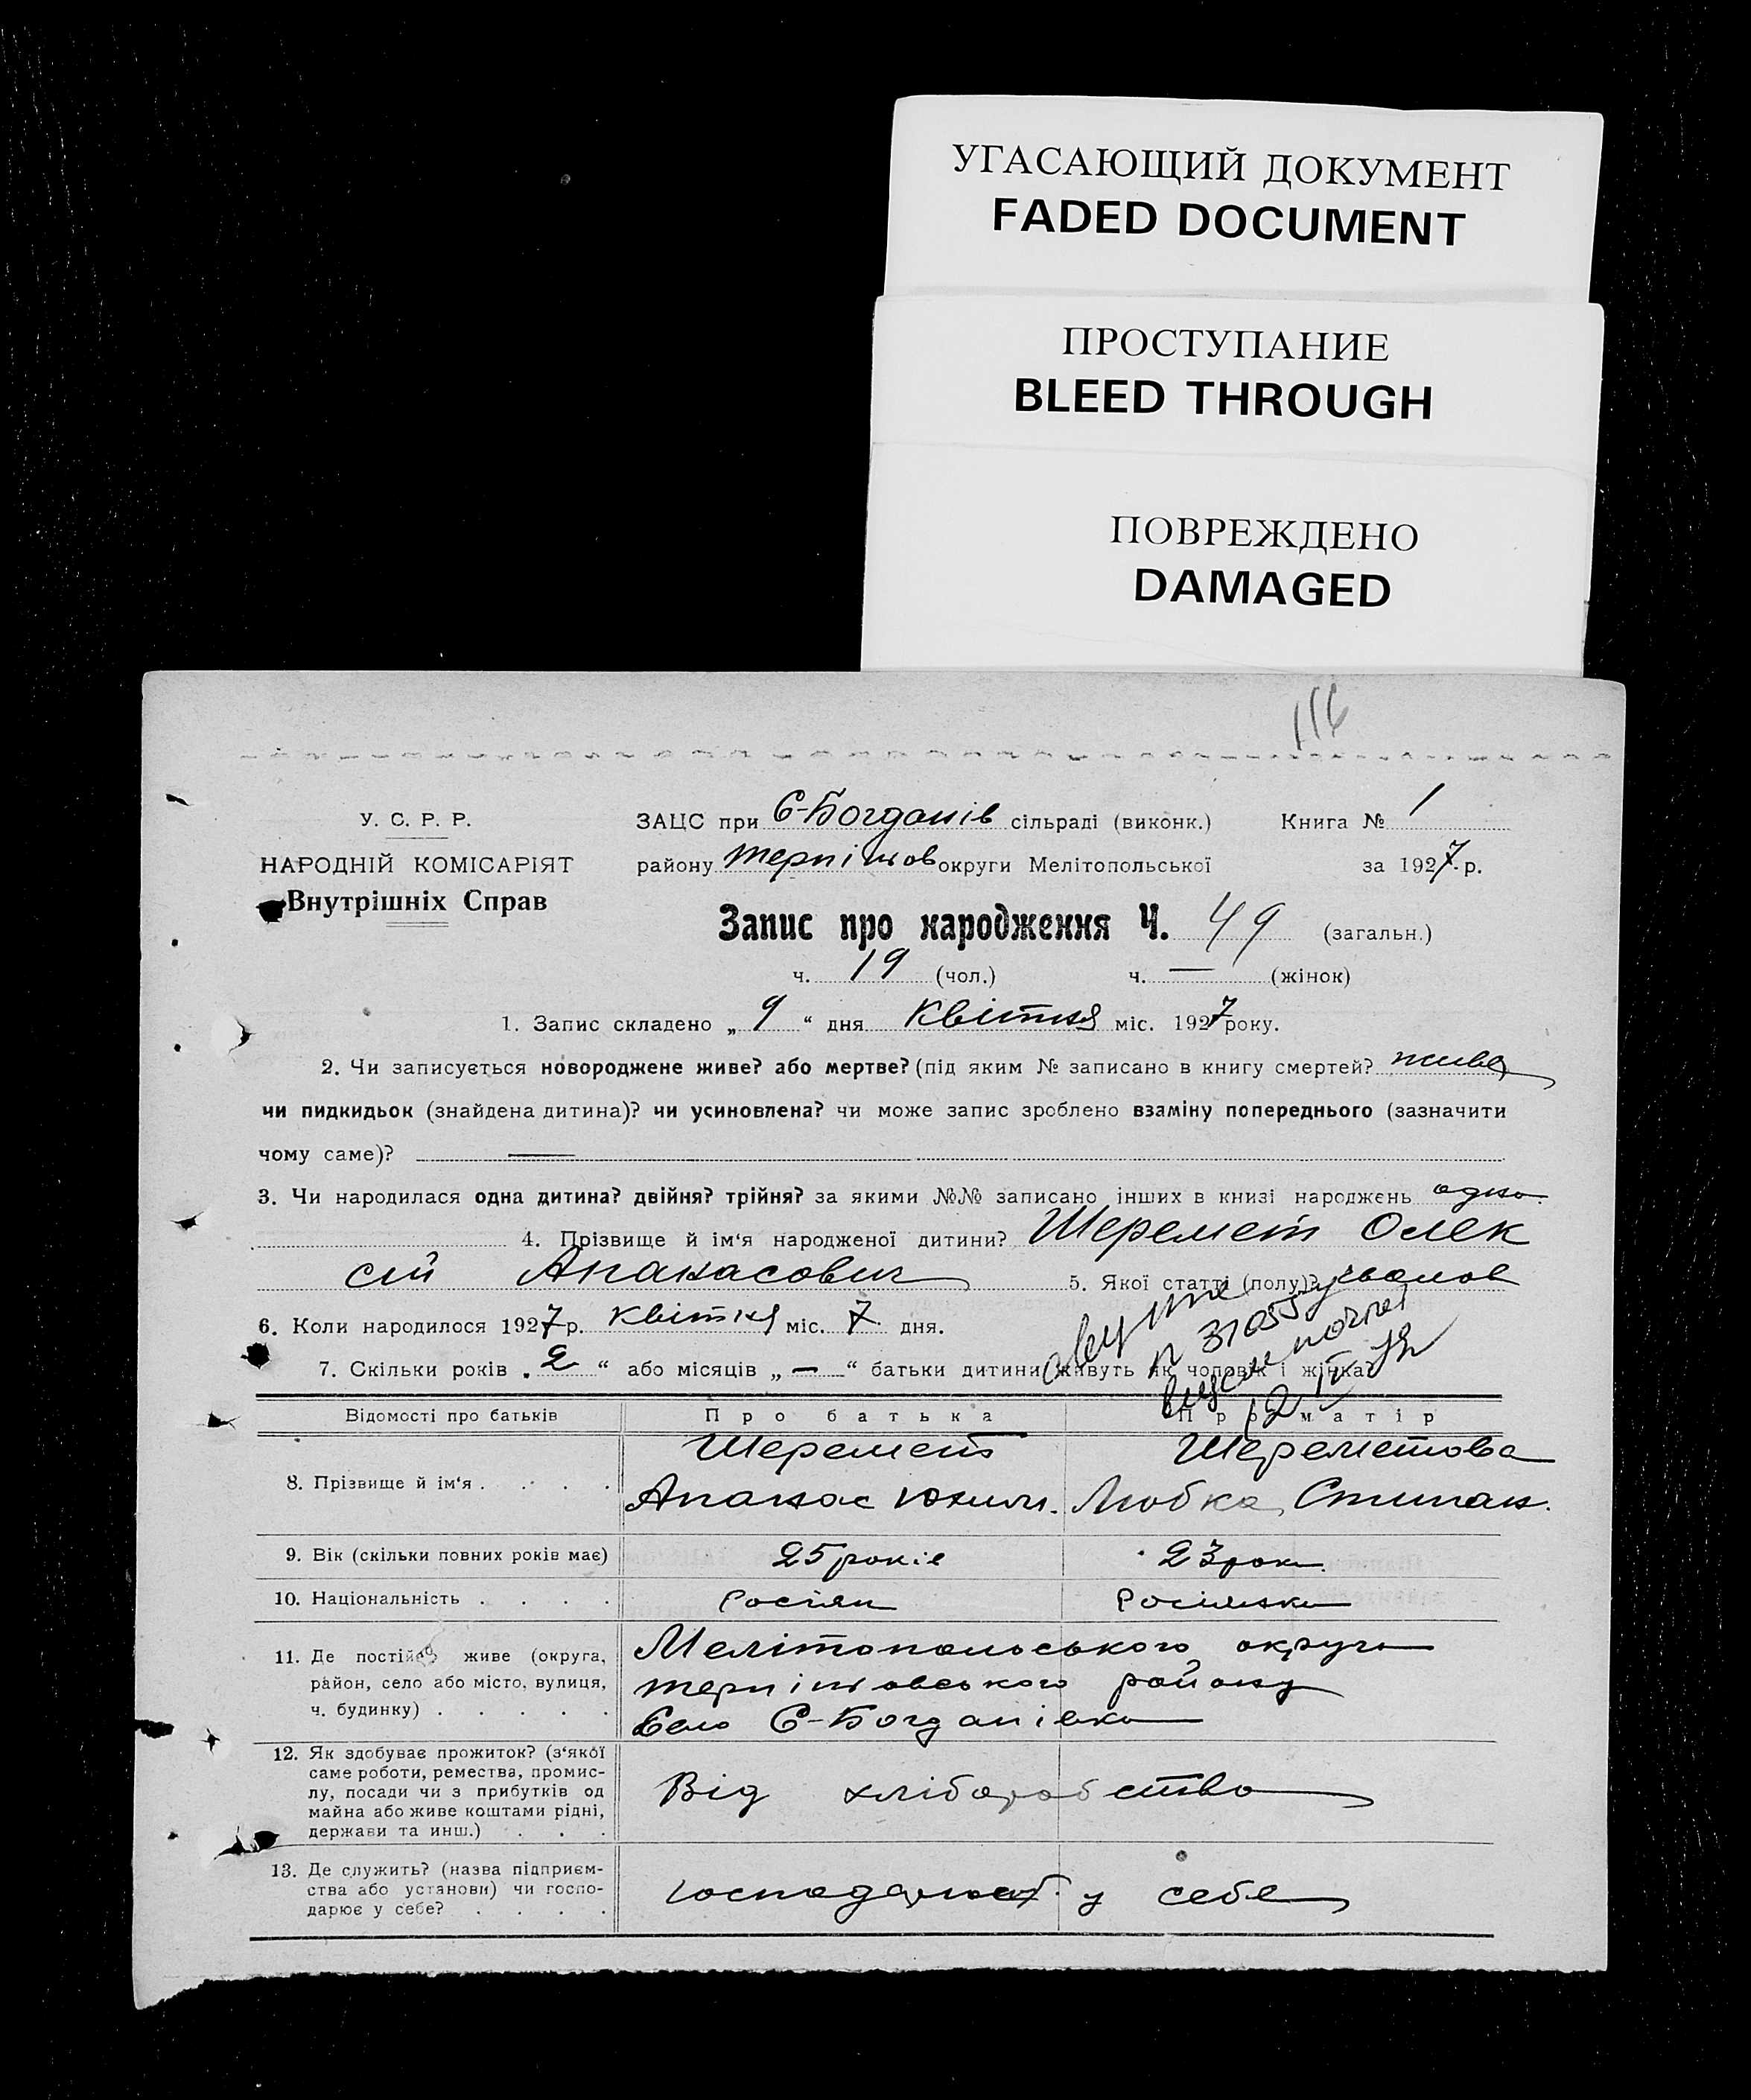 УГАСАЮЩИЙ ДОКУМЕНТ
FADED DOCUMENT
ПРОСТУПАНИЕ
BLEED THROUGH
ПОВРЕЖДЕНО
DAMAGED
116
У. С. Р. Р.
НАРОДНІЙ КОМІСАРІЯТ
Внутрішніх Справ
ЗАЦС при Є-Богданів сільраді (виконк.) Книга № 1
району Терпіннов округи Мелітопольської за 1927 р.
Запис про народження Ч. 49 (загальн.)
ч. 19 (чол.) ч. — (жінок)
1. Запис складено „ 9 “ дня Квітня міс. 1927 року.
2. Чи записується новороджене живе? або мертве? (під яким № записано в книгу смертей? живе
чи пидкидьок (знайдена дитина)? чи усиновлена? чи може запис зроблено взаміну попереднього (зазначити
чому саме)? —
3. Чи народилася одна дитина? двійня? трійня? за якими №№ записано інших в книзі народжень одна
4. Прізвище й ім‘я народженої дитини? Шеремет Олек
сій Апанасович 5. Якої статті (полу)? чолов
6. Коли народилося 1927 р. Квітня міс. 7 дня.
7. Скільки років „ 2 “ або місяців „ — “ батьки дитини живуть як чоловік і жінка?
Відомості про батьків Про батька Про матір
8. Прізвище й ім‘я . . . . Шеремет Шереметова
Апанас Юхим. Любка Степан.
9. Вік (скільки повних років має) 25 років 23 роки
10. Національність . . . . Росіян Росіянка
11. Де постійно живе (округа, Мелітопольського округа
район, село або місто, вулиця, терпіновського району
ч. будинку) . . . . . Село Є-Богданівка
12. Як здобуває прожиток? (з‘якої
саме роботи, ремества, промис-
лу, посади чи з прибутків од Від хліборобства
майна або живе коштами рідні,
держави та инш.) . . .
13. Де служить? (назва підприєм-
ства або установи) чи госпо- господарюют у себе
дарює у себе? . . . .